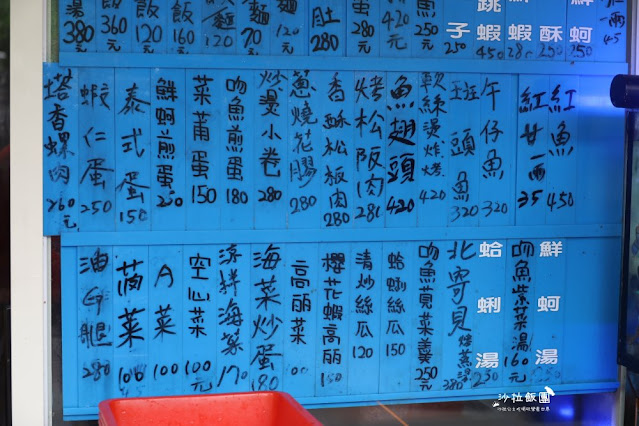 湯 380元
飯 360元
飯 120
飯 160元
麵 70元
麵 120
肚 280
蛋 360元
420元
魚 250元
子 250
跳蝦 450
蝦
酥 250
蚵 250
一兩 45
塔香螺肉 260元
蝦仁蛋 250
泰式蛋 150
鮮蚵煎蛋 250
菜甫蛋 150
吻魚煎蛋 180
炒燙小卷 280
蔥燒花膠 280
香酥松板肉 280
烤松阪肉 280
魚翅頭 420
軟絲燙炸烤 420
班頭魚 320
午仔魚 320
紅甘一兩 35
紅魚 450
油仔腿 280
茼菜 100
A菜 100
空心菜 100元
涼拌海菜 170
海菜炒蛋 180
高丽菜 100
櫻花蝦高丽 150
清炒絲瓜 120
蛤蜊絲瓜 150
吻魚莧菜羹 250元
北寄貝 380
蛤蜊湯 250
吻魚紫菜湯 160元
鮮蚵湯 250
沙拉飯團